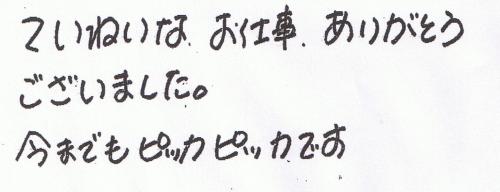 ていねいな、お仕事、ありがとう
ございました。
今までもピッカピッカです